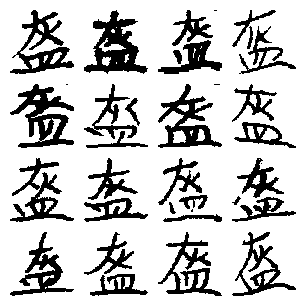 盔盔盔盔
盔盔盔盔
盔盔盔盔
盔盔盔盔